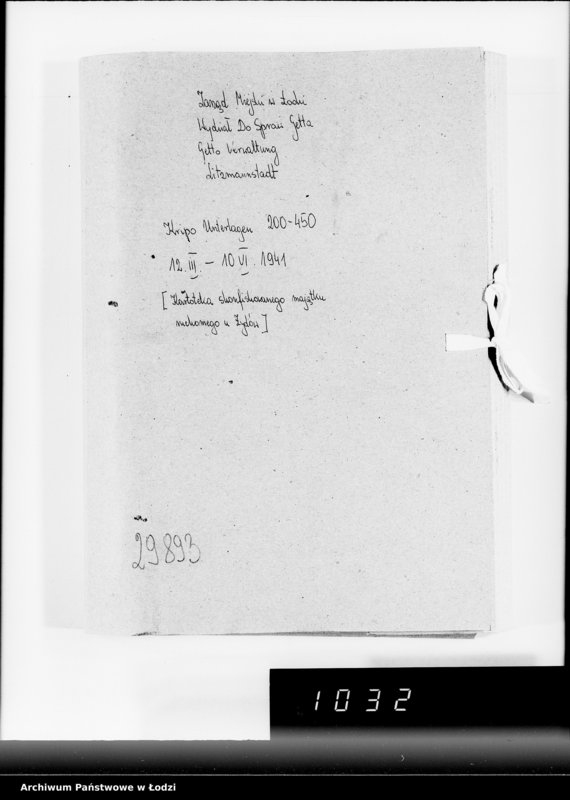 Zarząd Miejski w Łodzi
Wydział Do Spraw Getta
Getto Verwaltung
Litzmannstadt
Kripo Unterlagen 200-450
12.III. - 10 VI. 1941
[Kartoteka skonfiskowanego majątku
ruchomego u Żydów]
29893
1032
Archiwum Państwowe w Łodzi